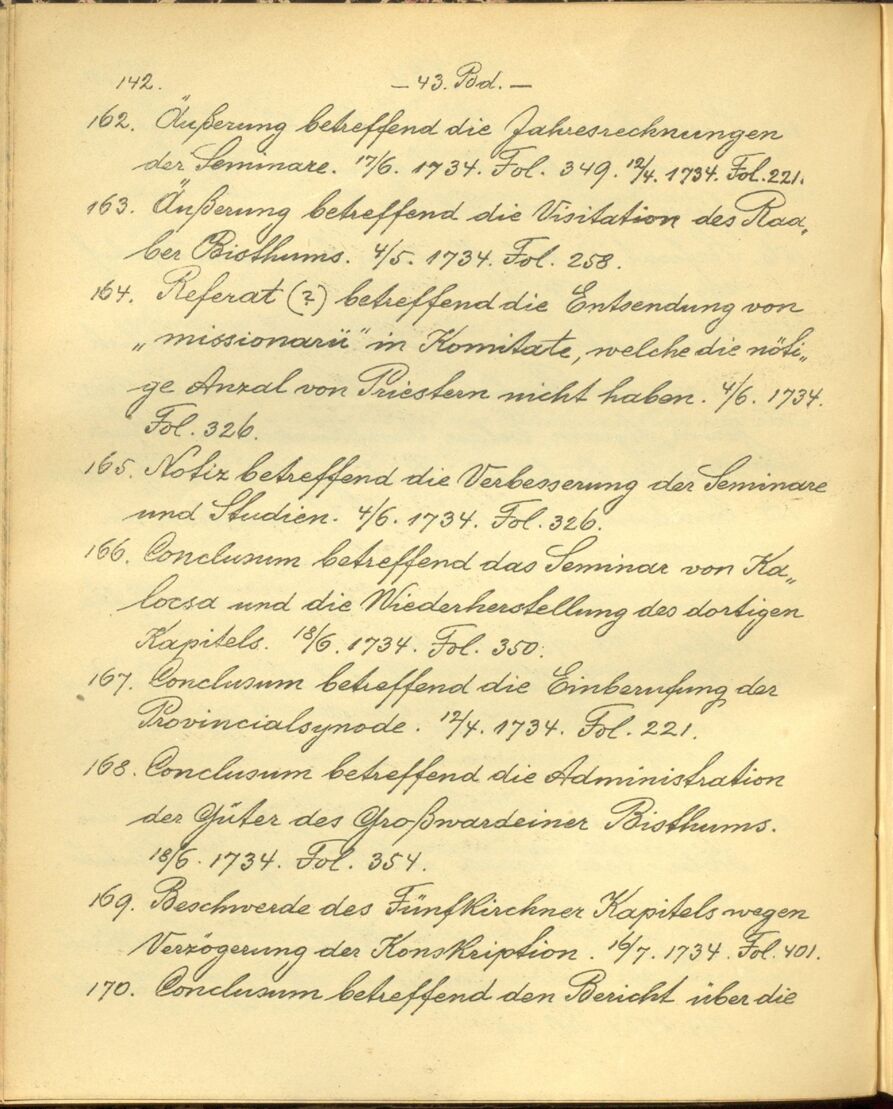 142. — 43. Bd. —
162. Äußerung betreffend die Jahresrechnungen
der Seminare. 17/6. 1734. Fol. 349. 12/4. 1734. Fol. 221.
163. Äußerung betreffend die Visitation des Raa„
ber Bisthums. 4/5. 1734. Fol. 258.
164. Referat (?) betreffend die Entsendung von
„missionarii" in Komitate, welche die nöti„
ge Anzal von Priestern nicht haben. 4/6. 1734.
Fol. 326.
165. Notiz betreffend die Verbesserung der Seminare
und Studien. 4/6. 1734. Fol. 326.
166. Conclusum betreffend das Seminar von Ka„
locsa und die Wiederherstellung des dortigen
Kapitels. 18/6. 1734. Fol. 350.
167. Conclusum betreffend die Einberufung der
Provincialsynode. 12/4. 1734. Fol. 221.
168. Conclusum betreffend die Administration
der Güter des Großwardeiner Bisthums.
18/6. 1734. Fol. 354.
169. Beschwerde des Fünfkirchner Kapitels wegen
Verzögerung der Konskription. 16/7. 1734. Fol. 401.
170. Conclusum betreffend den Bericht über die